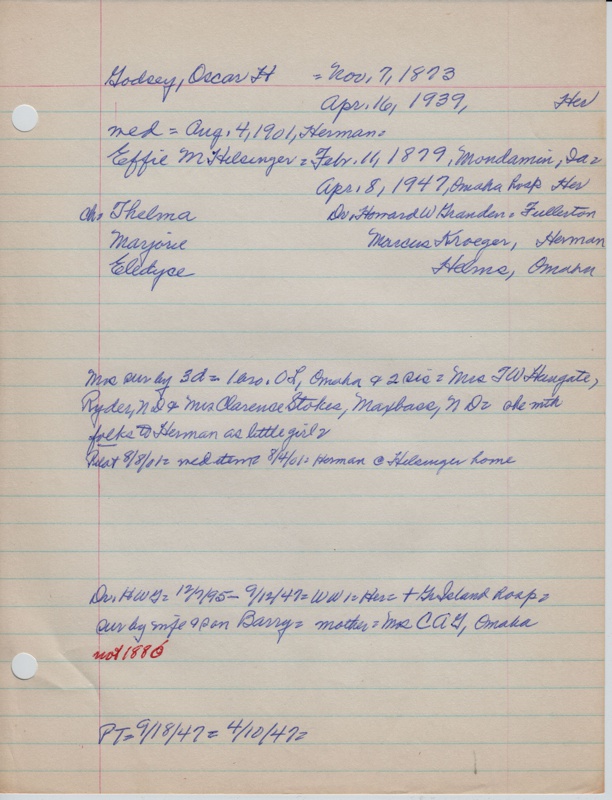 Godsey, Oscar H = Nov. 7, 1873
Apr. 16, 1939, Her
med = Aug. 4, 1901, Herman=
Effie M Hilsinger = Febr. 11, 1879, Mondamin, Ia=
Apr. 8, 1947, Omaha hosp Her
ch= Thelma Dr. Howard W Granden = Fullerton
Marjorie Marcus Kroeger, Herman
Eledyse Helms, Omaha
Mrs sur by 3d = 1 bro. O L, Omaha & 2 sis = Mrs T W Hungate,
Ryder, N D & Mrs Clarense Stokes, Maxbass, N D= she with
folks to Herman as little girl=
Pilot 8/8/01= med item= 8/4/01= Herman @ Hilsinger home
Dr. H W G = 12/7/95 - 9/12/47= WW 1= Her= + Gr Island hosp=
sur by wife & son Barry= mother= Mrs C A G, Omaha
not 1886
PT= 9/18/47= 4/10/47=